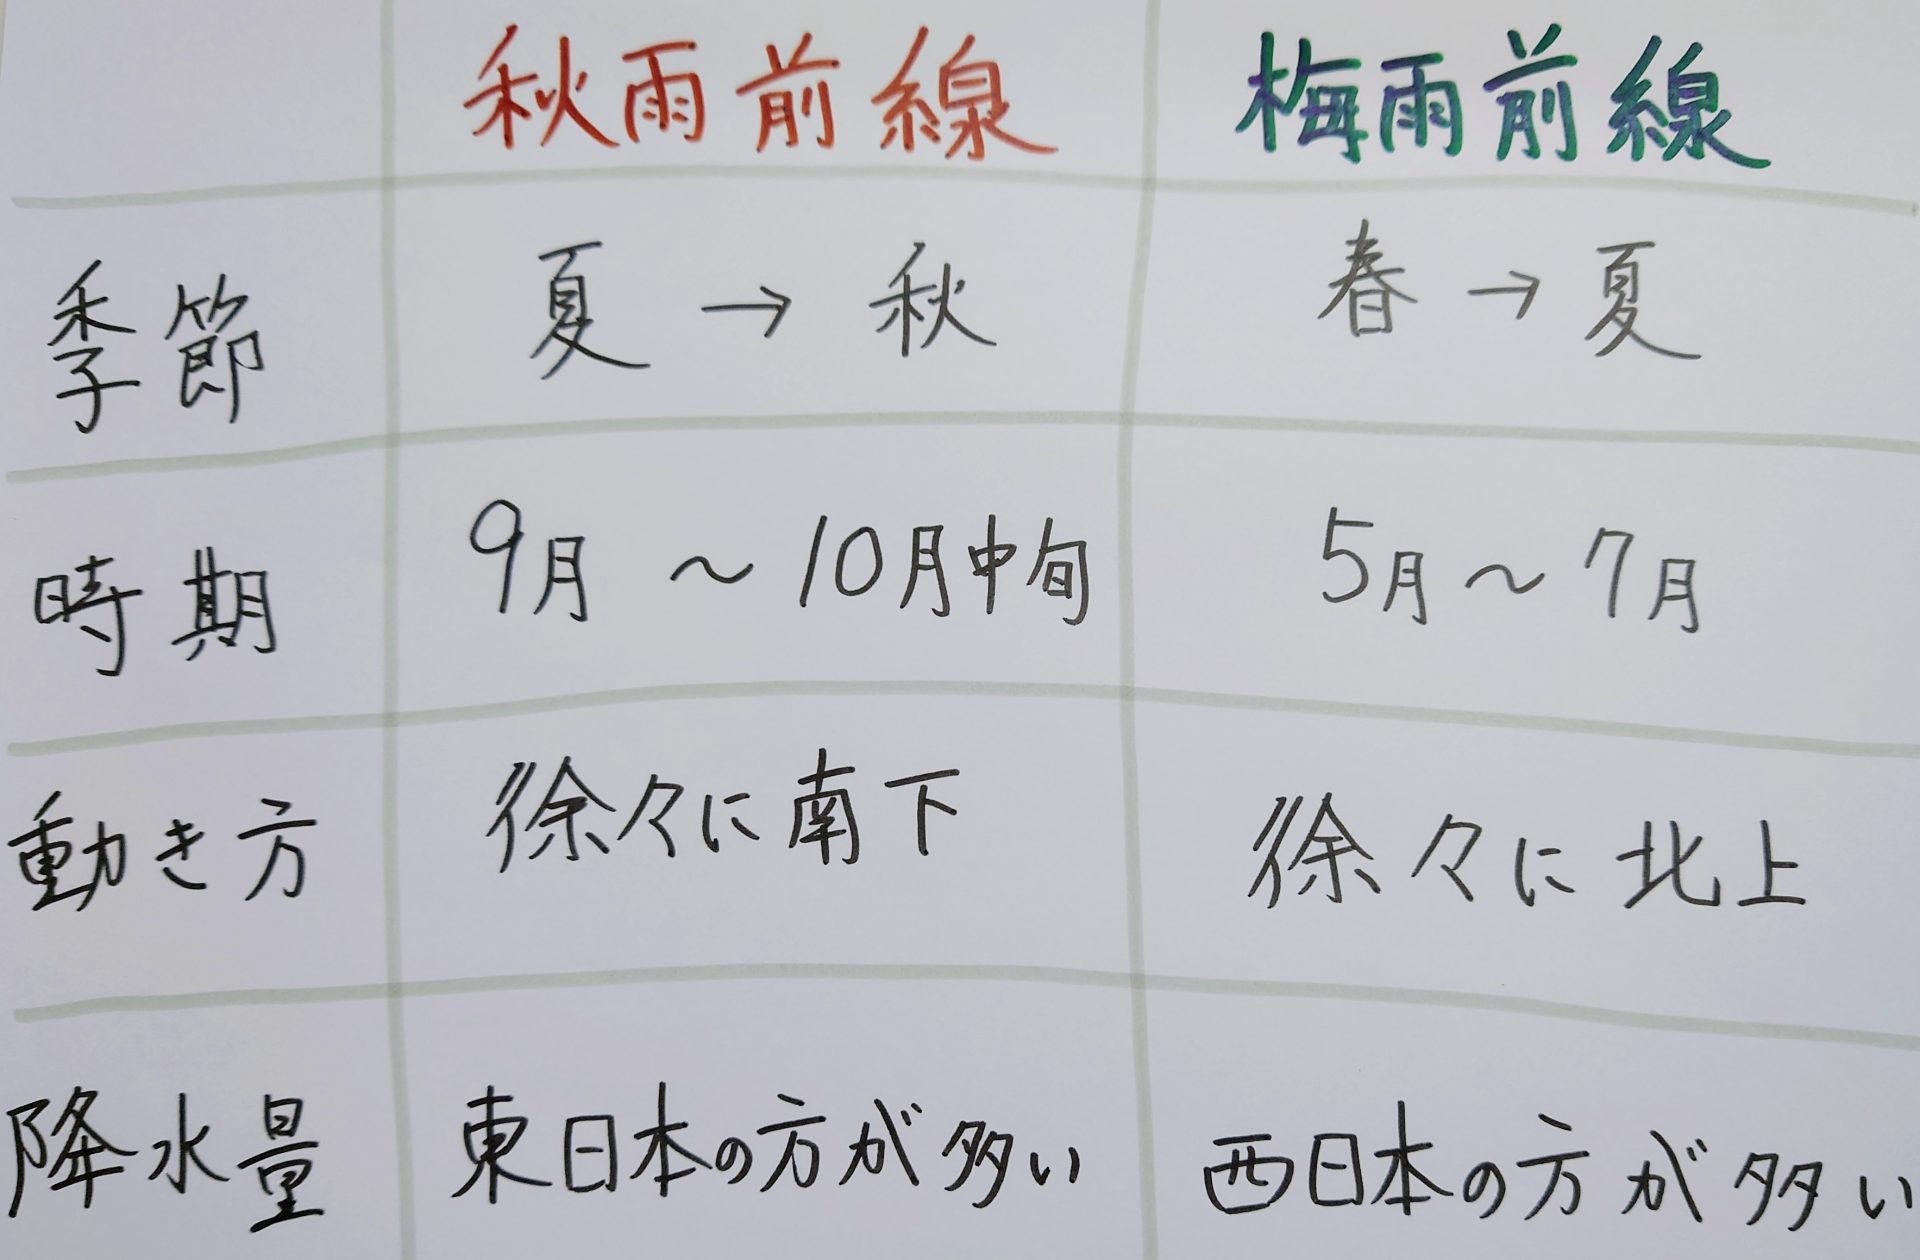 秋雨前線 梅雨前線
季節 夏 → 秋 春 → 夏
時期 9月 〜 10月中旬 5月 〜 7月
動き方 徐々に南下 徐々に北上
降水量 東日本の方が多い 西日本の方が多い